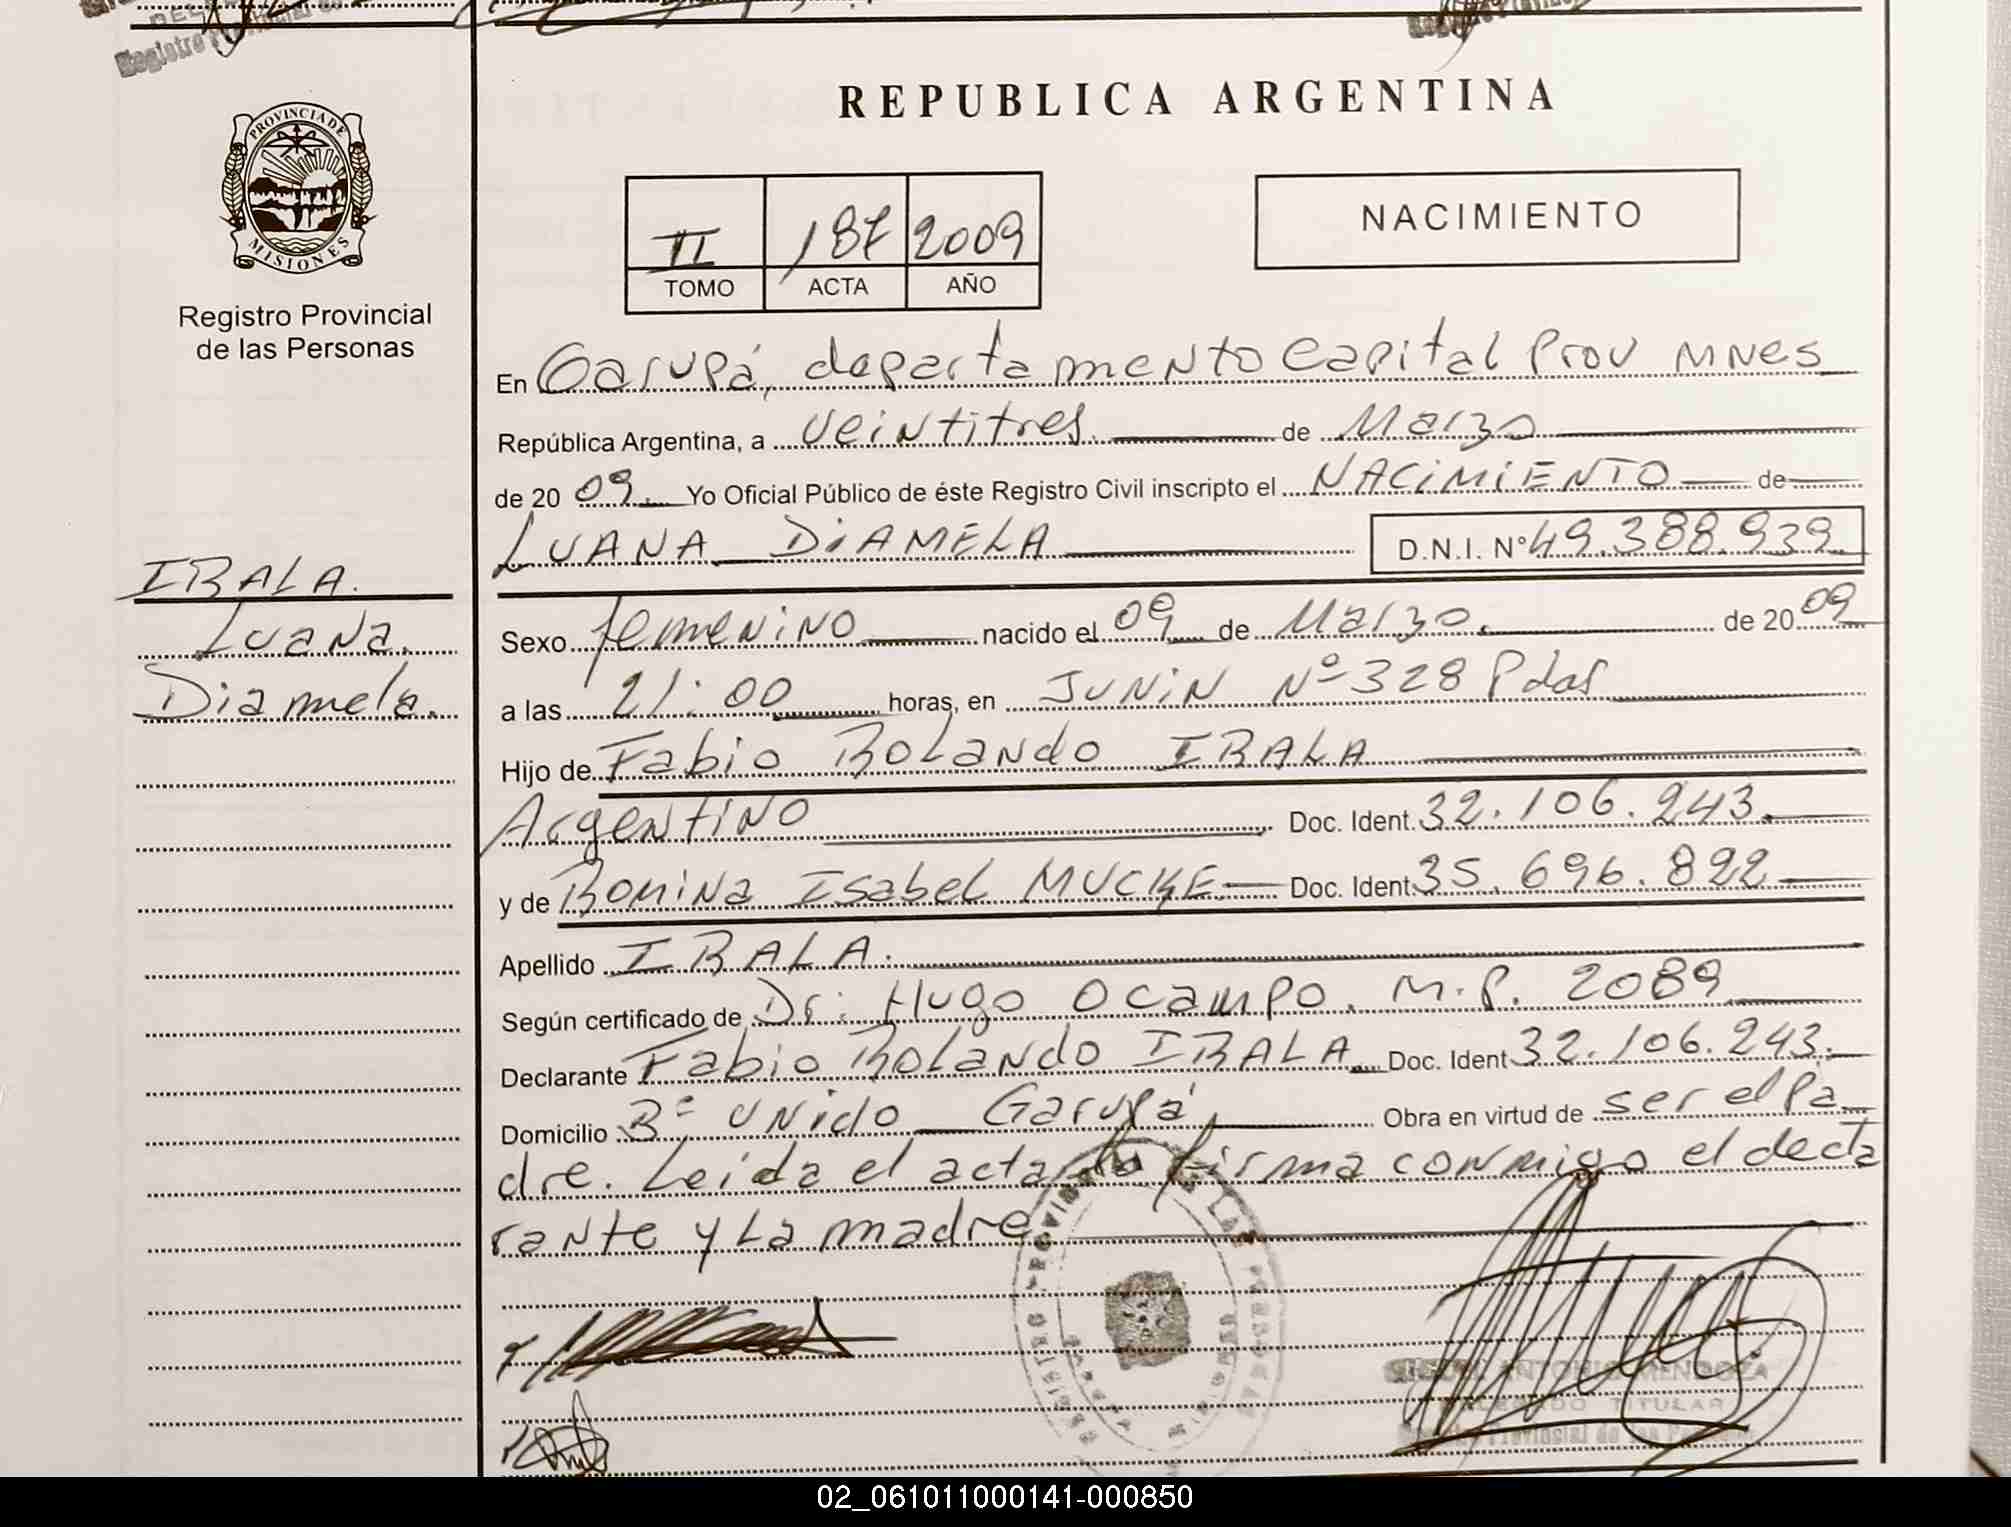 REPUBLICA ARGENTINA
PROVINCIA DE
MISIONES
Registro Provincial
de las Personas
II 187 2009
TOMO ACTA AÑO
NACIMIENTO
En Garupá, departamento Capital Prov MNES
República Argentina, a veintitres de Marzo
de 20 09. Yo Oficial Público de éste Registro Civil inscripto el NACIMIENTO de
LUANA DIAMELA D.N.I. N° 49.388.939
IRALA.
Luana.
Diamela.
Sexo femenino nacido el 09 de Marzo. de 20 09
a las 21:00 horas, en JUNIN Nº 328 Pdas
Hijo de Fabio Rolando IRALA
Argentino Doc. Ident. 32.106.243.
y de Romina Isabel MUCKE Doc. Ident. 35.696.822
Apellido IRALA.
Según certificado de Dr: Hugo Ocampo. M.P. 2089
Declarante Fabio Rolando IRALA Doc. Ident 32.106.243.
Domicilio Bº Unido Garupá, Obra en virtud de ser el pa
dre. Leida el acta la firma conmigo el decla
rante y la madre
ANTONIO MENDOZA
DELEGADO TITULAR
02_061011000141-000850